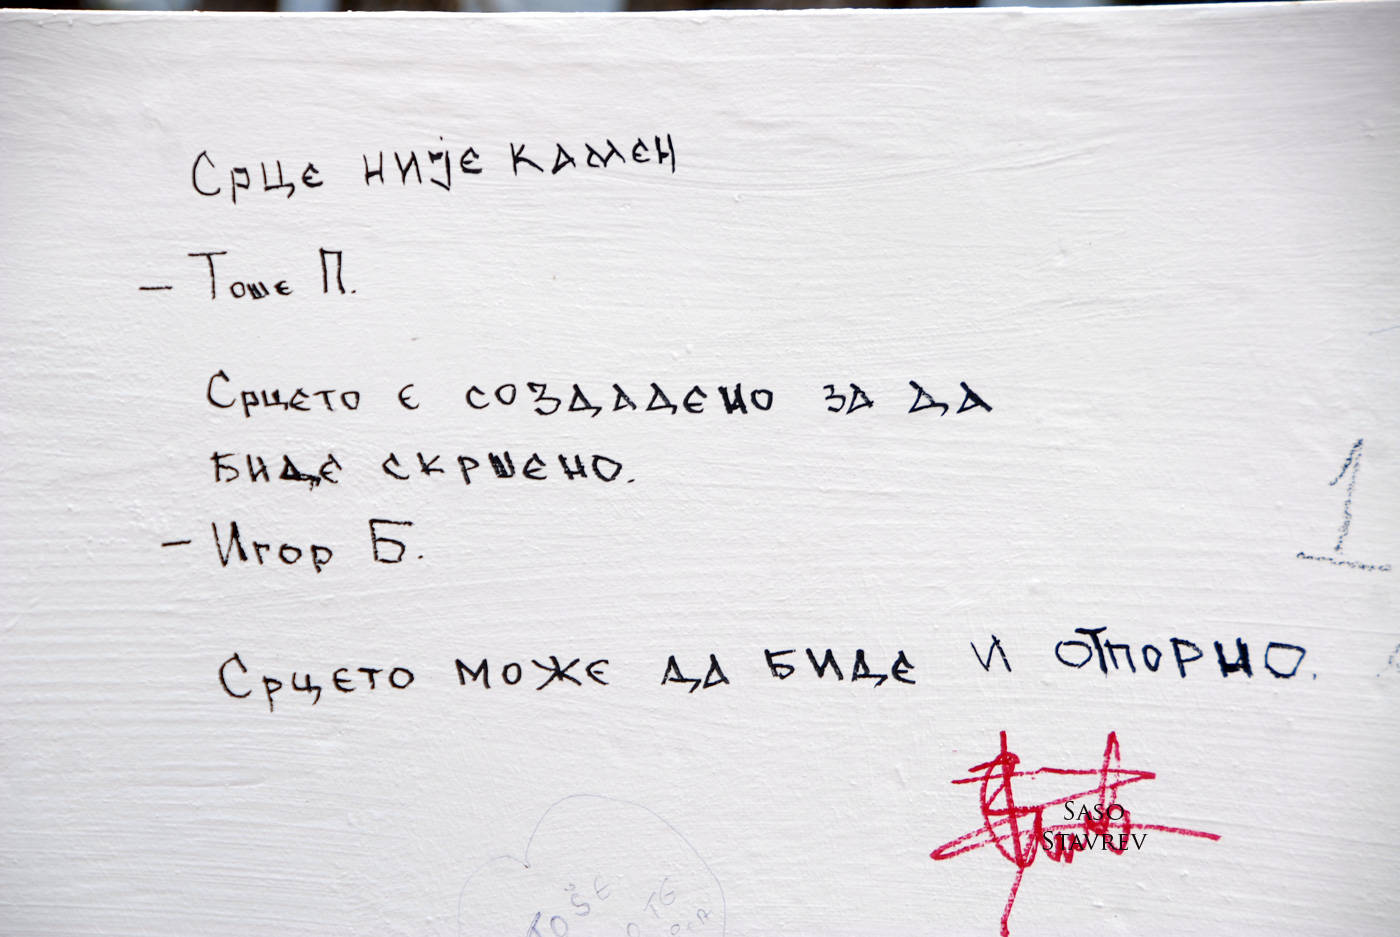 Срце није камен
– Тоше П.
Срцето е создадено за да
биде скршено.
– Игор Б.
1
Срцето може да биде и отпорно.
SASO
STAVREV
TOŠE